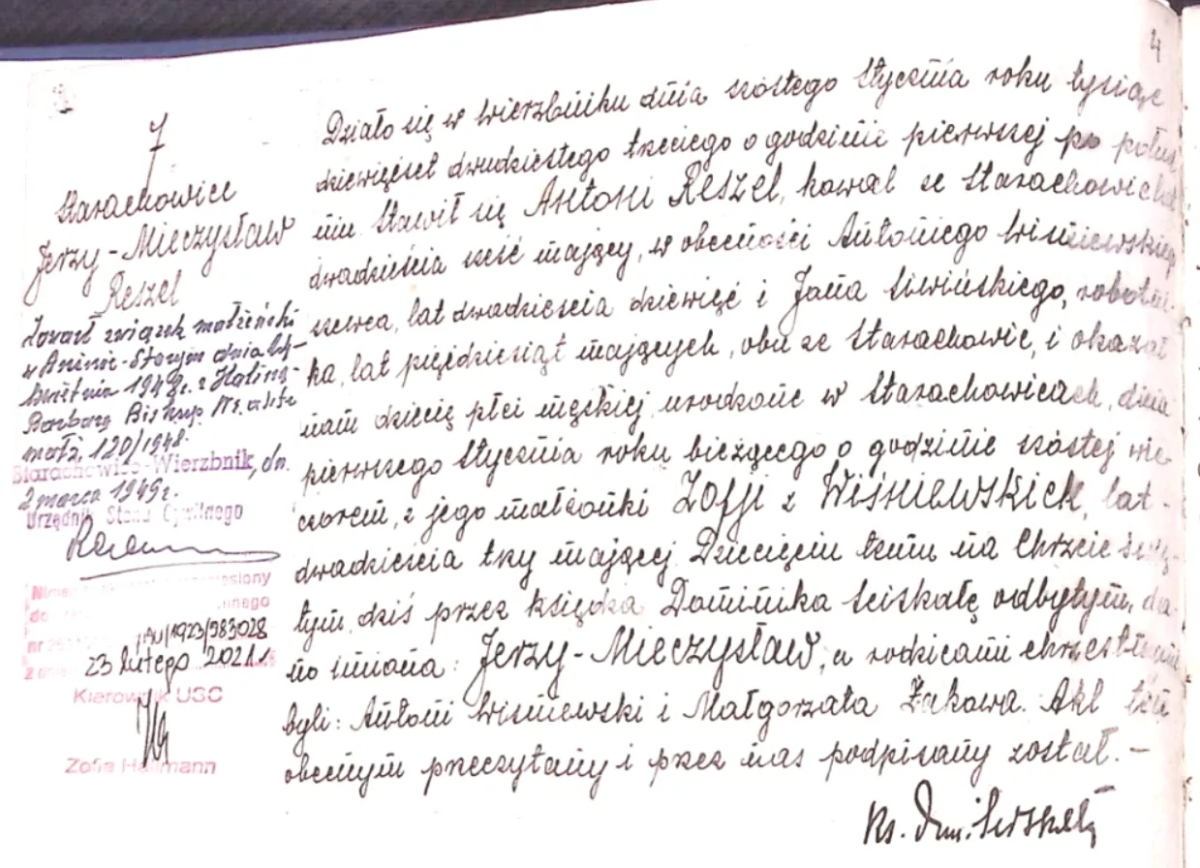 4
7
Starachowice
Jerzy-Mieczysław
Reszel
Zawarł związek małżeński
w Aninie-Starym dnia
kwietnia 1948r. z Haliną-
Barbarą Biskup Nr. aktu
małż. 120/1948.
Starachowice-Wierzbnik, dn.
2 marca 1949r.
Urzędnik Stanu Cywilnego
AU/1923/983028
23 lutego 2021
Kierownik USC
Zofia
Działo się w Wierzbniku dnia szóstego Stycznia roku tysiąc
dziewięćset dwudziestego trzeciego o godzinie pierwszej po połud
niu Stawił się Antoni Reszel, kowal ze Starachowic lat
dwadzieścia sześć mający, w obecności Antoniego Wiśniewskiego
szewca, lat dwadzieścia dziewięć i Jana Siwińskiego, robotni-
ka, lat pięćdziesiąt mających, obu ze Starachowic, i okazał
nam dziecię płci męskiej urodzone w Starachowicach, dnia
pierwszego Stycznia roku bieżącego o godzinie szóstej wie-
czorem, z jego małżonki Zofji z Wiśniewskich, lat-
dwadzieścia trzy mającej Dziecięciu temu na Chrzcie Świę-
tym dziś przez księdza Dominika Ściskałę odbytym, da-
no imiona: Jerzy-Mieczysław, a rodzicami chrzestnymi
byli: Antoni Wiśniewski i Małgorzata Żakowa. Akt ten
obecnym przeczytany i przez nas podpisany został. –
Ks. Dom. Ściskała